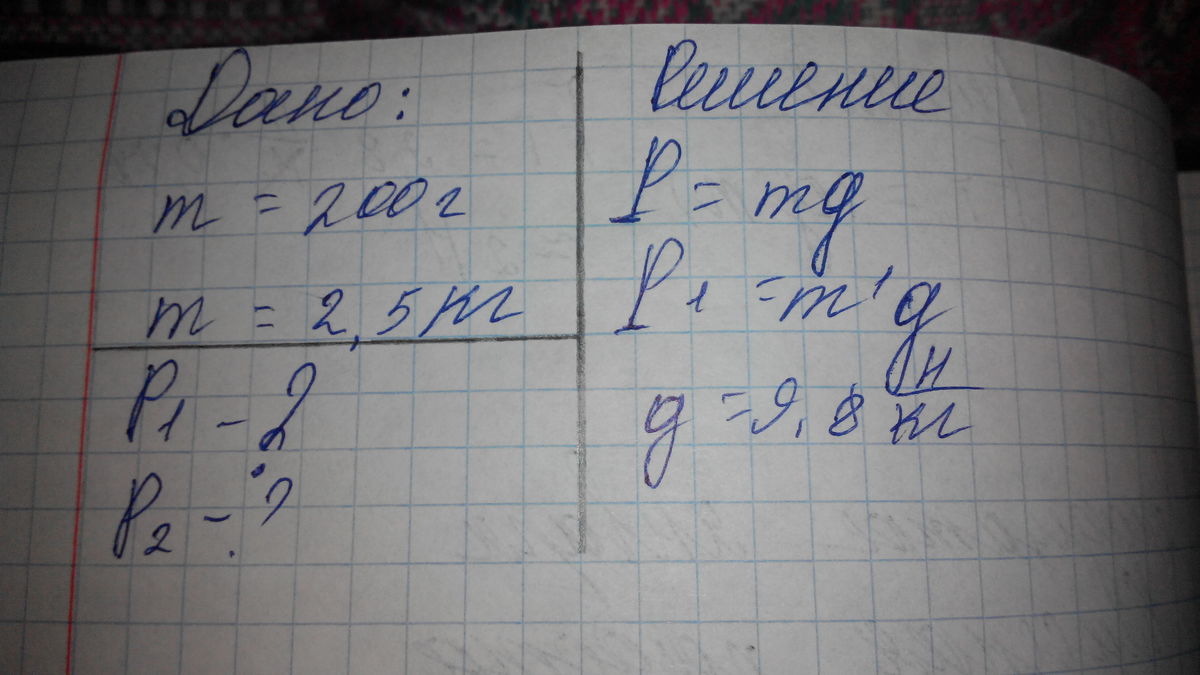 Дано:
m = 200г
m = 2,5кг
P1 - ?
P2 - ?
Решение
P = mg
P1 = m1g
g = 9,8 н/кг